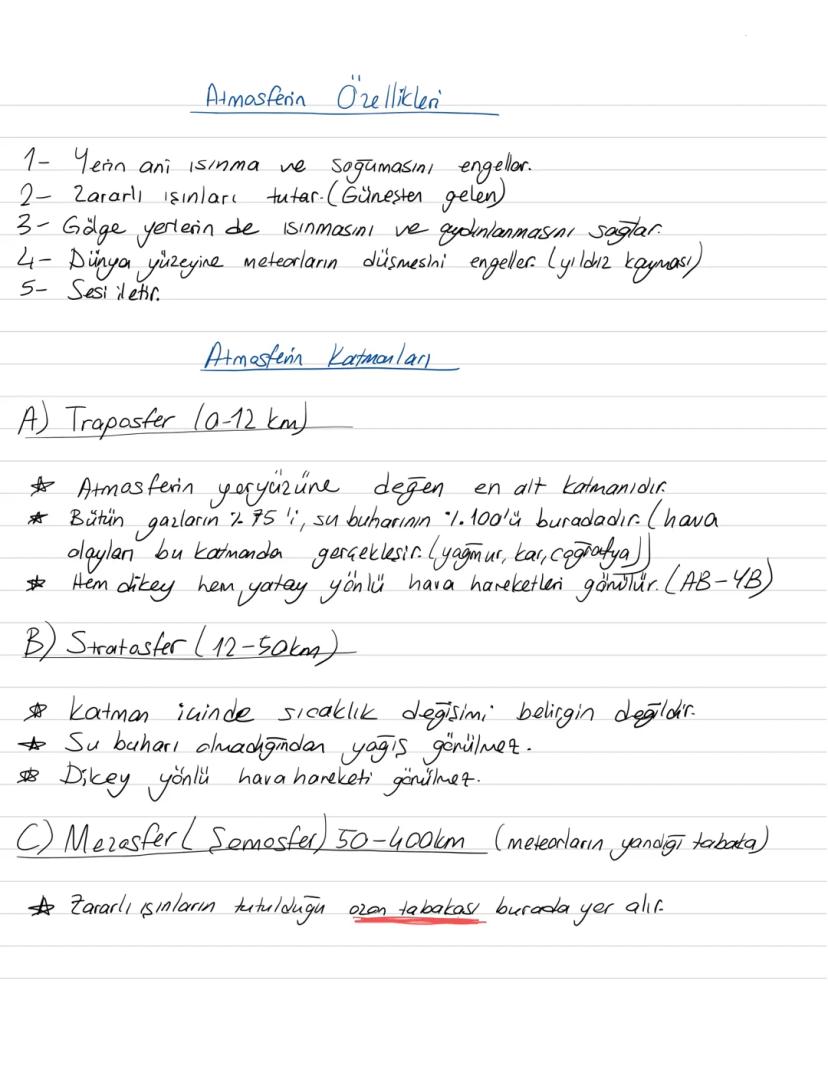 Atmosferin Özellikleri
1- Yerin ani ısınma ve soğumasını engeller.
2- Zararlı ışınları tutar. (Güneşten gelen)
3- Gölge yerlerin de ısınmasını ve aydınlanmasını sağlar.
4- Dünya yüzeyine meteorların düşmesini engeller (yıldız kayması)
5- Sesi iletir.
Atmosferin Katmanları
A) Traposfer (0-12 km)
☆ Atmosferin yeryüzüne değen en alt katmanıdır.
☆ Bütün gazların %75'i, su buharının %100'ü buradadır. (hava
olayları bu katmanda gerçekleşir. (yağmur, kar, coğrafya))
☆ Hem dikey hem yatay yönlü hava hareketleri görülür. (AB-YB)
B) Stratosfer (12-50km)
☆ Katman içinde sıcaklık değişimi belirgin değildir.
☆ Su buharı olmadığından yağış görülmez.
☆ Dikey yönlü hava hareketi görülmez.
C) Mezosfer (Şemosfer) 50-400km (meteorların yandığı tabaka)
☆ Zararlı ışınların tutulduğu ozon tabakası burada yer alır.